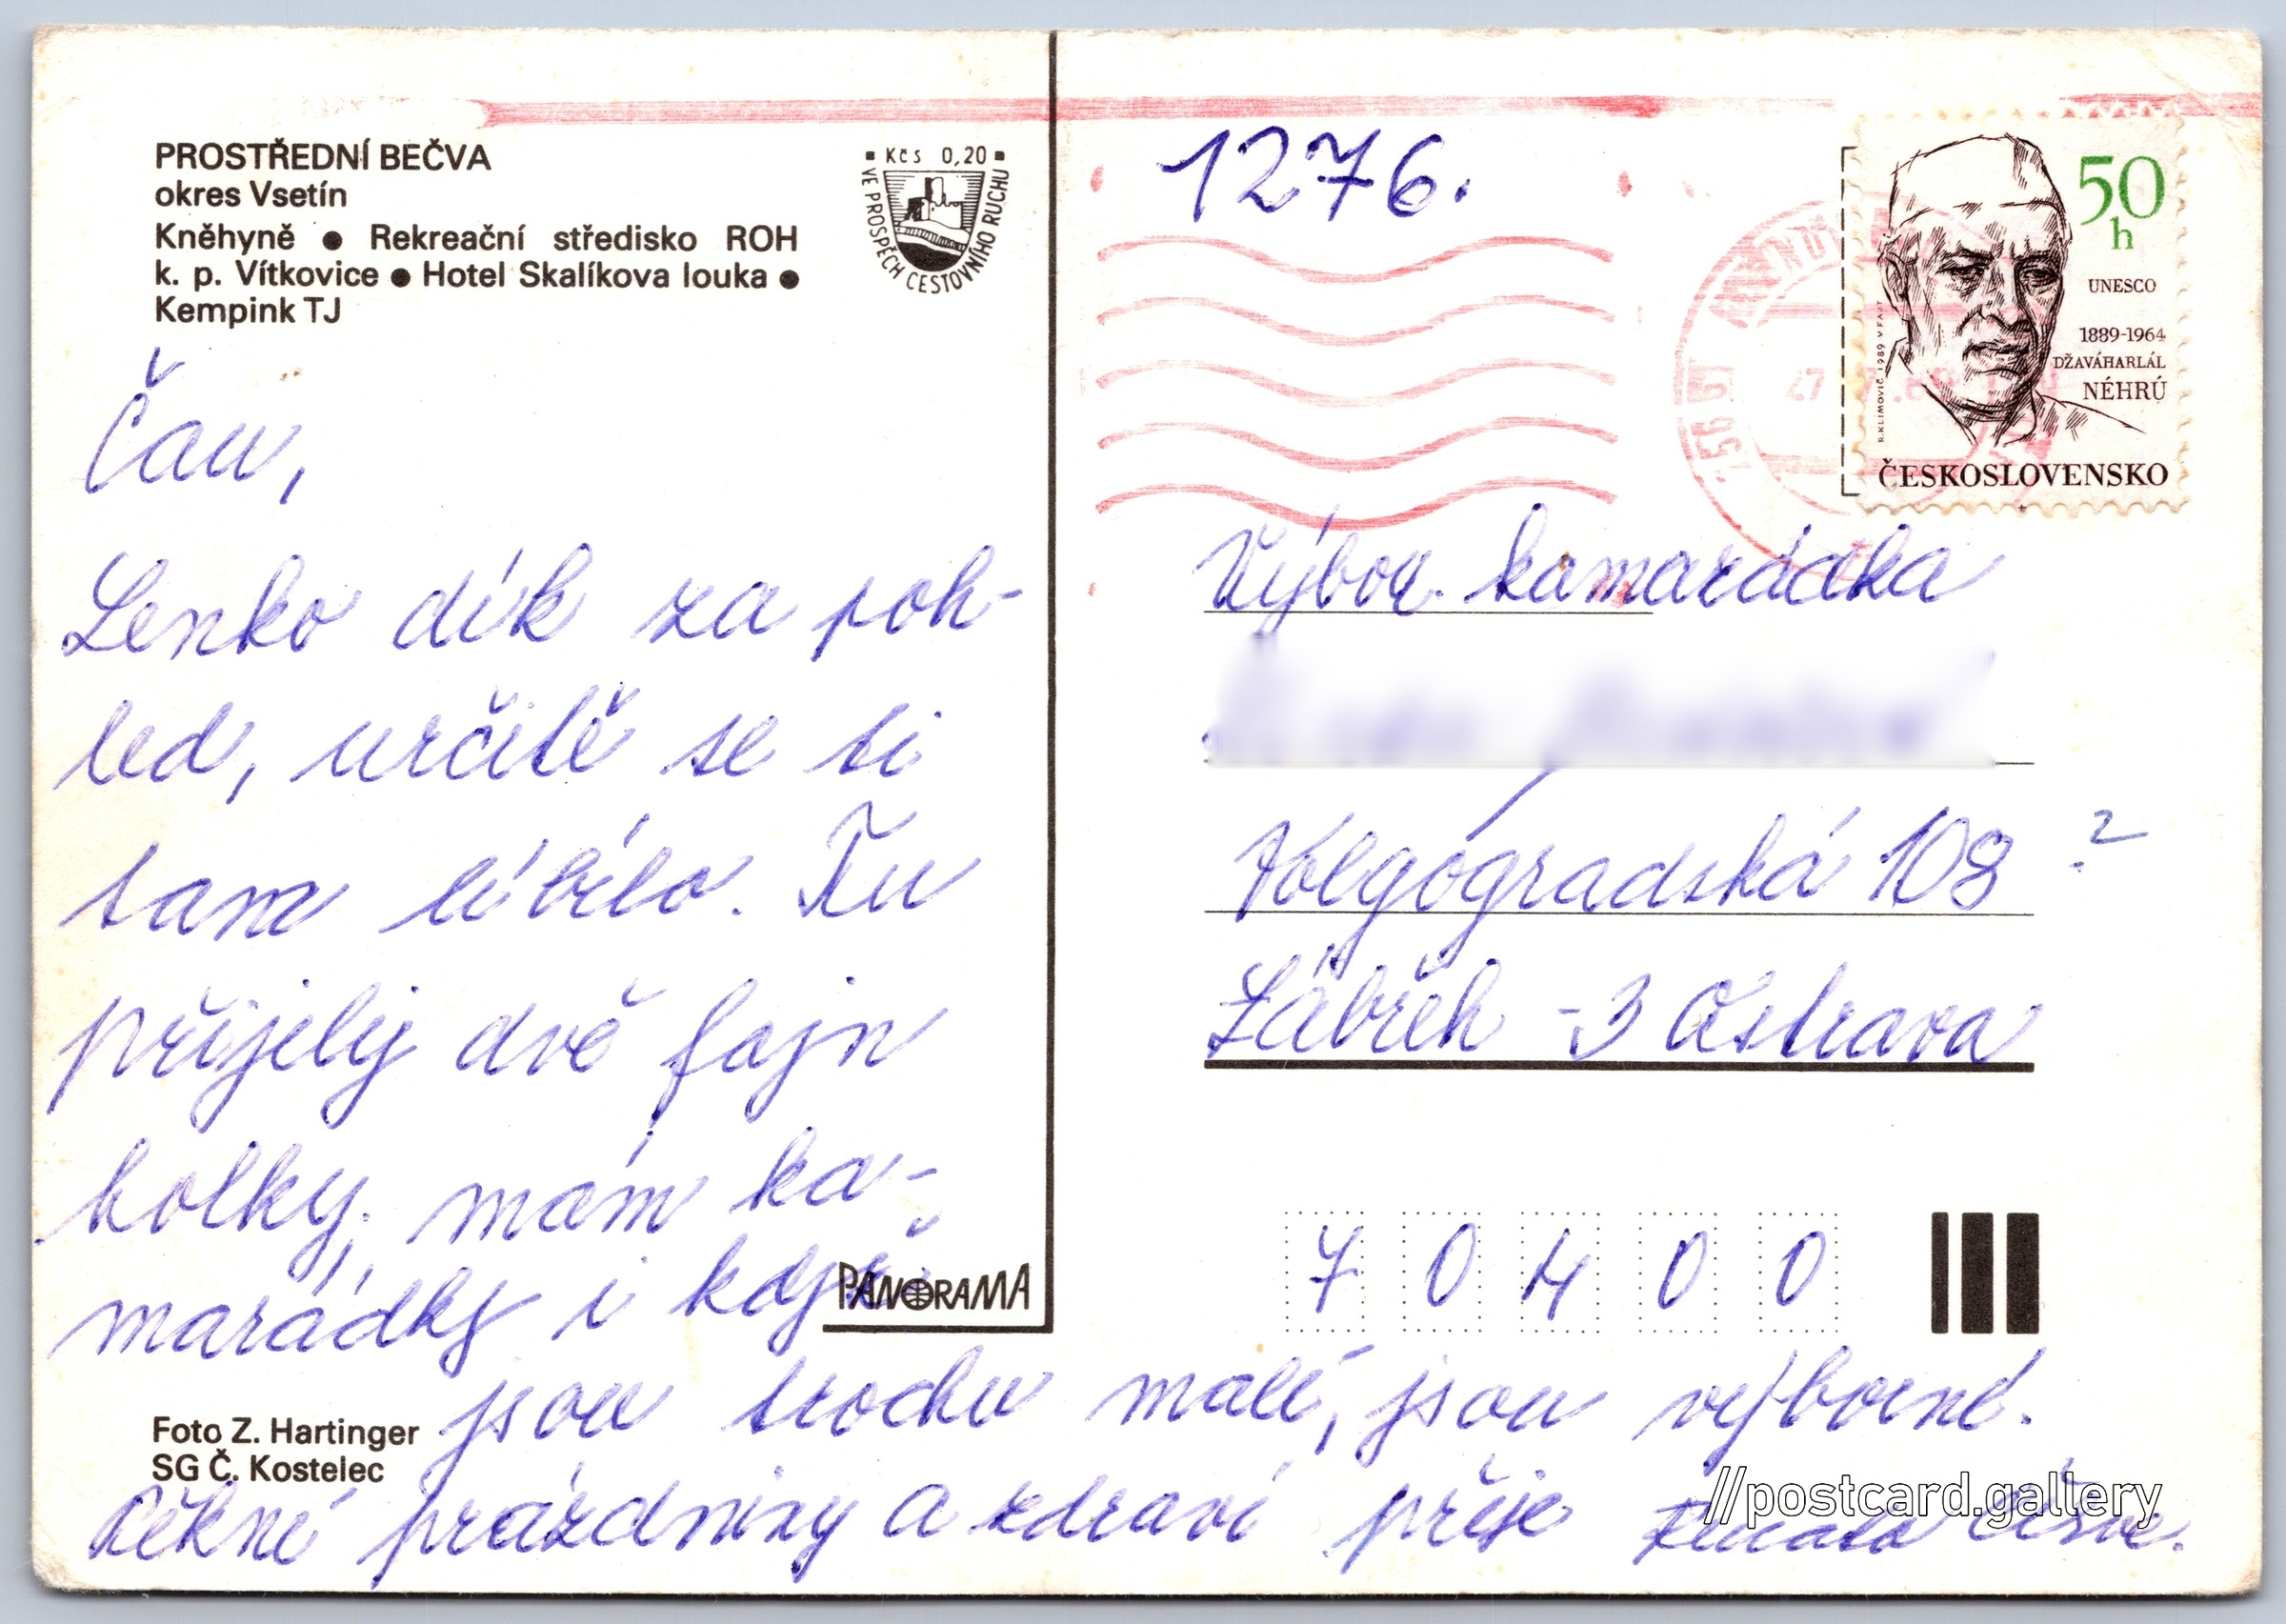 PROSTŘEDNÍ BEČVA
okres Vsetín
Kněhyně ● Rekreační středisko ROH
k. p. Vítkovice ● Hotel Skalíkova louka ●
Kempink TJ
▪ Kčs 0,20 ▪
VE PROSPĚCH CESTOVNÍHO RUCHU
Čau,
Lenko dík za poh-
led, určitě se ti
tam líbilo. Tu
přijely dvě fajn
holky, mám ka-
marádky i když
jsou trochu malé, jsou výborné.
Pěkné prázdniny a zdraví přeje Renata
PANORAMA
Foto Z. Hartinger
SG Č. Kostelec
1276.
50
h
UNESCO
1889-1964
DŽAVÁHARLÁL
NÉHRÚ
R. KLIMOVIČ 1989 V FAJT
ČESKOSLOVENSKO
756 51
27
Výbor. kamarádka
Volgogradská 108 ?
Zábřeh - 3 Ostrava
7 0 4 0 0
//postcard.gallery